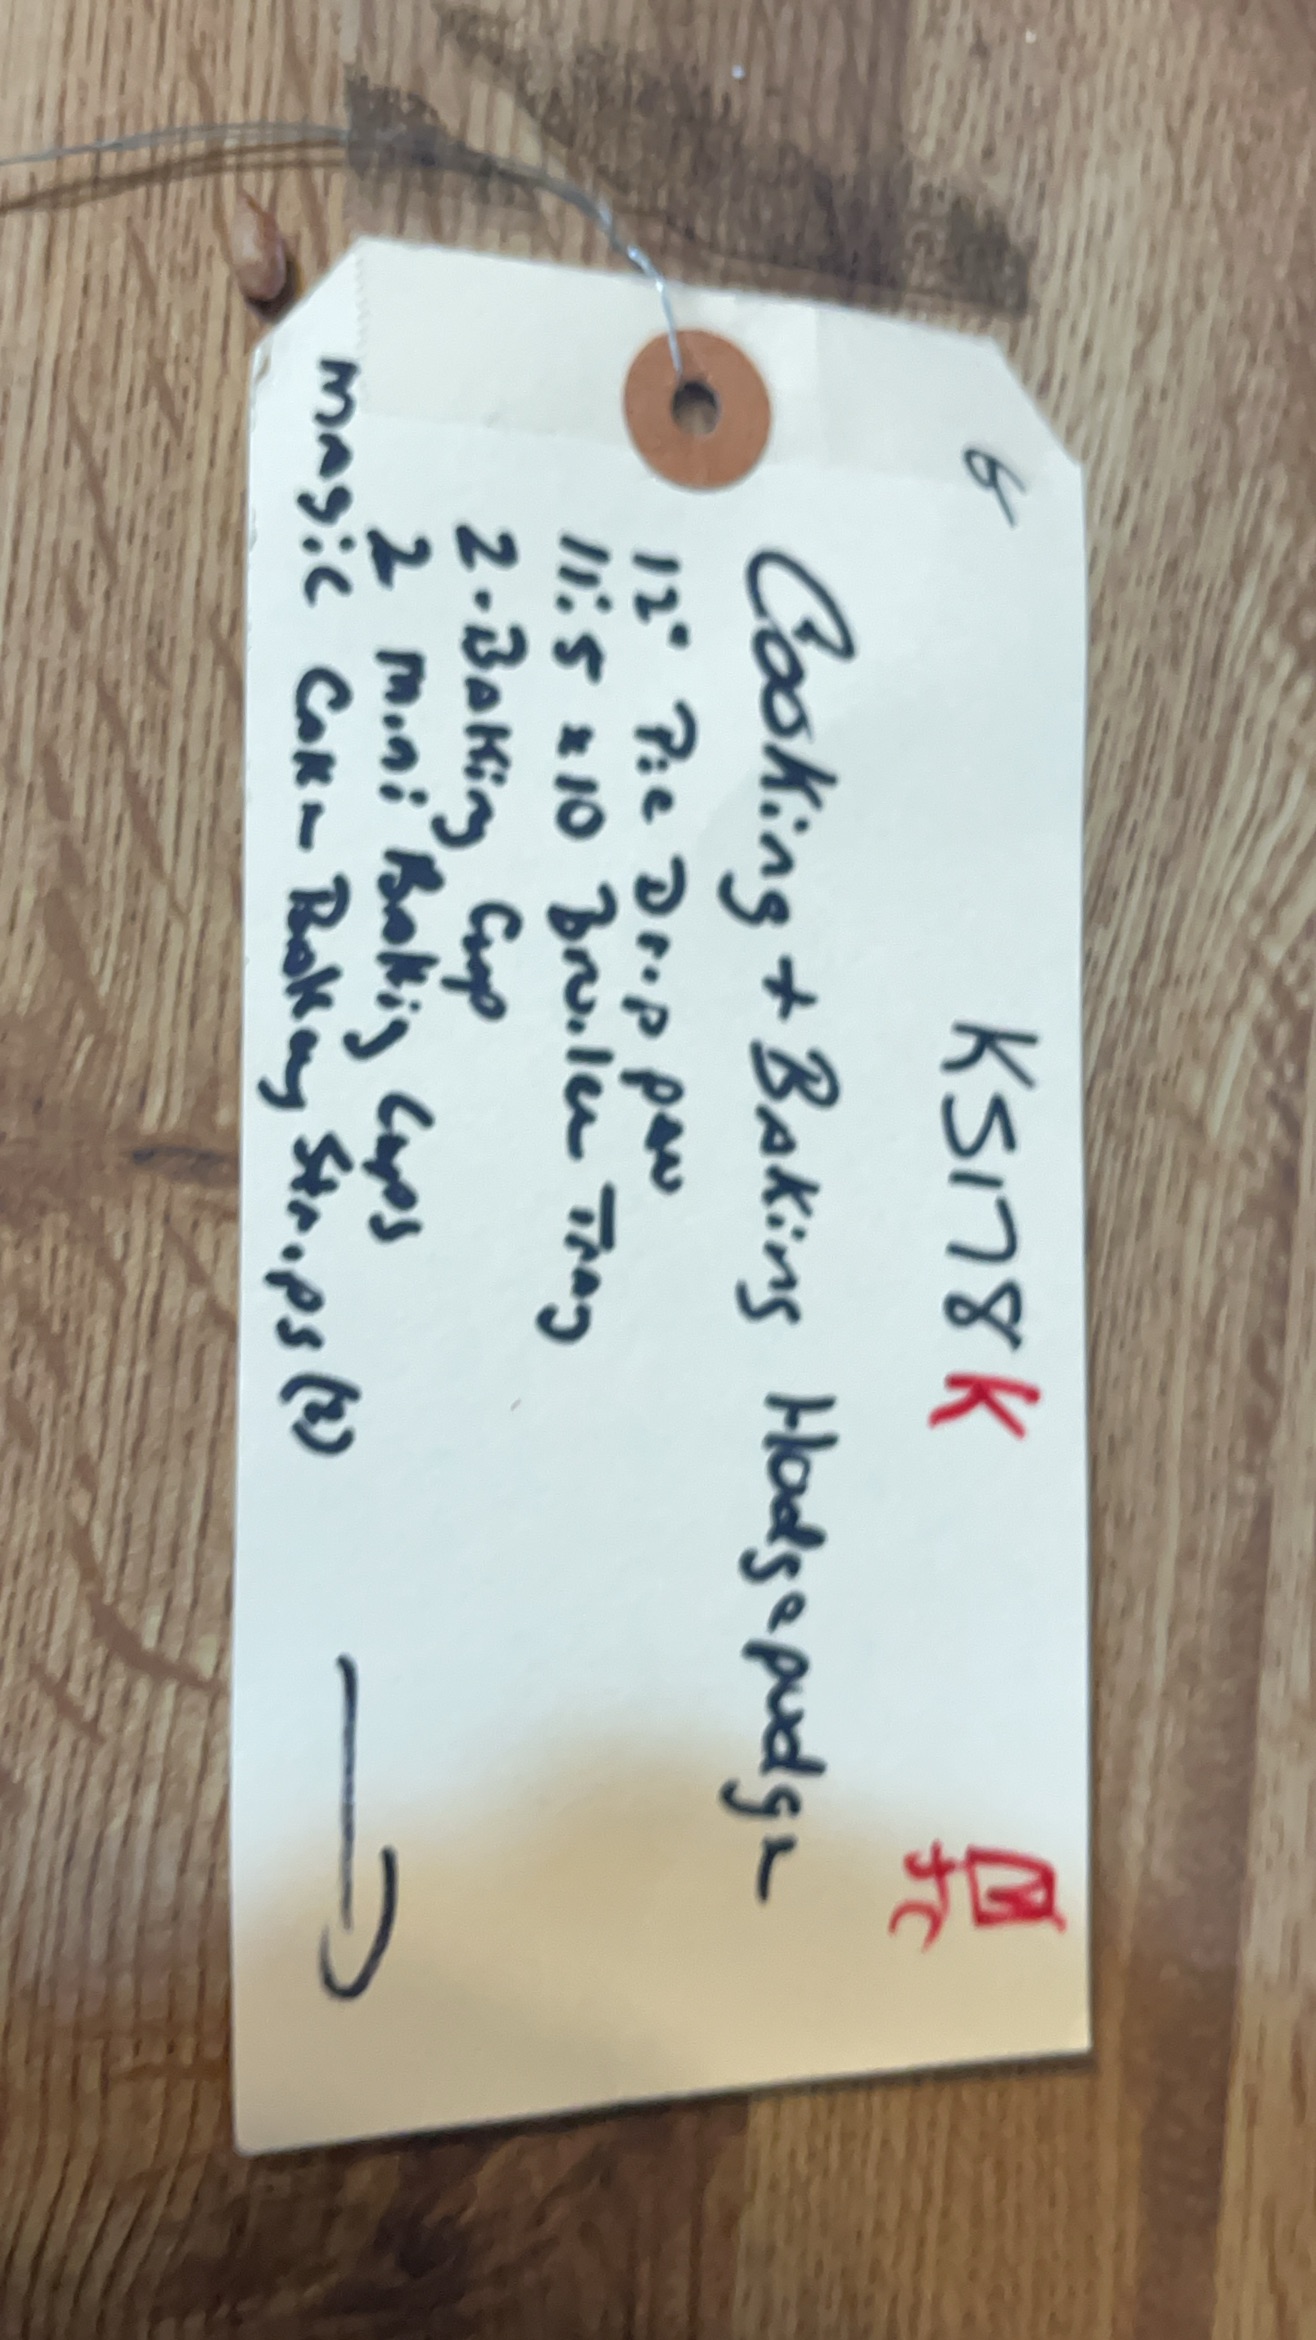 KS178K
Cooking + Baking Hodgepodge
12" Pie Drip pan
11.5 x 10 Broiler Tray
2 - Baking Cup
2 mini Baking Cups
magic Cake Baking Strips (2)